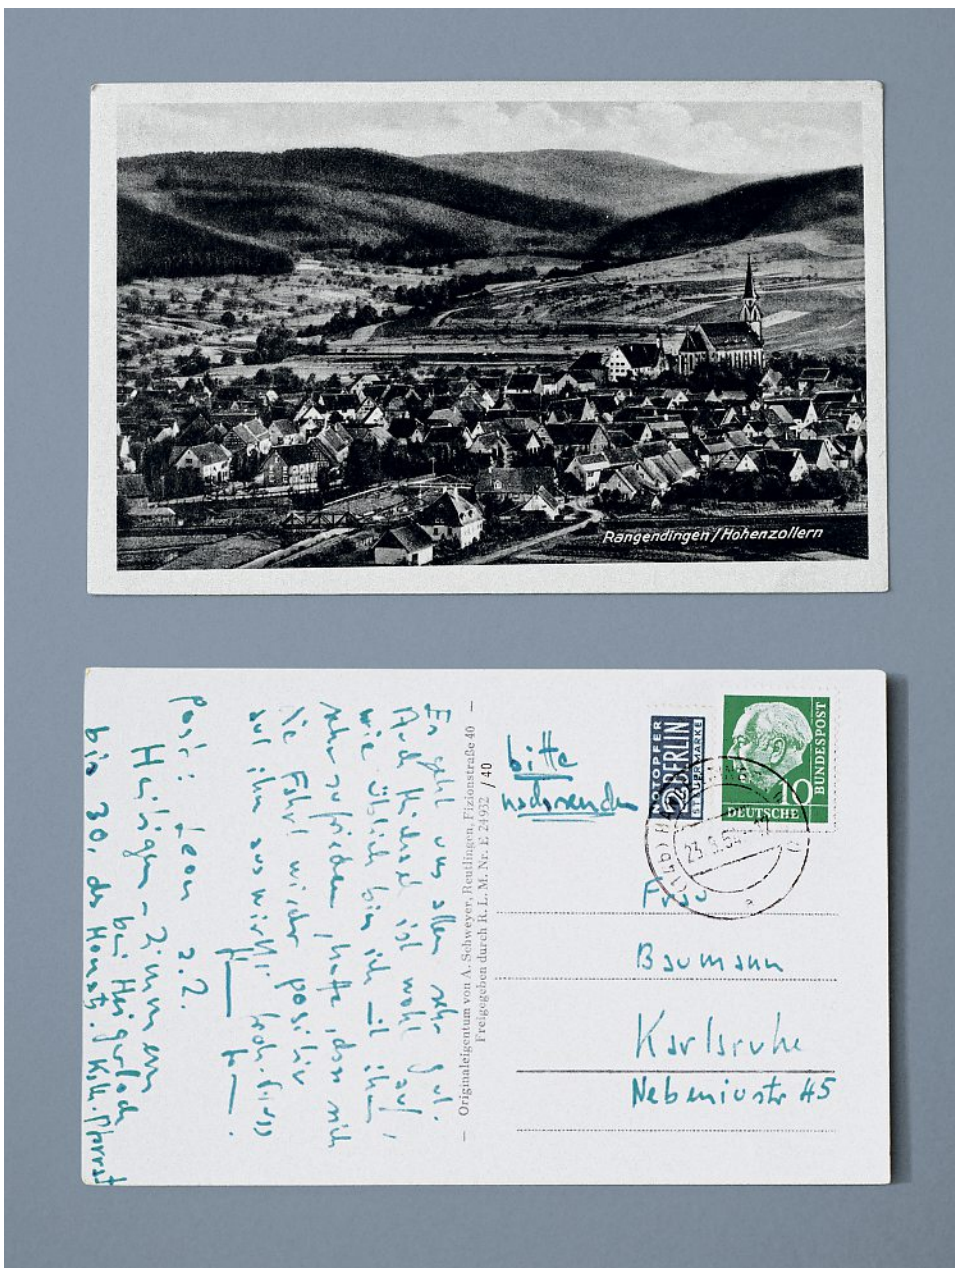 Rangendingen/Hohenzollern
Es geht uns allen sehr gut.
Auch Michael ist wohl auf,
wie üblich bin ich mit ihm
sehr zufrieden, hoffe, dass sich
die Fahrt wieder positiv
auf ihn auswirkt.
Post: 2.2.
Heiligen-Zimmern
bei Haigerloch
bis 30. des Monats. Kath. Pfarramt
— Originaleigentum von A. Schweyer, Reutlingen, Fizionstraße 40 —
Freigegeben durch R. L. M. Nr. E 24932 /40
bitte
nachsenden
NOTOPFER
2 BERLIN
STEUERMARKE
10
DEUTSCHE
BUNDESPOST
(14b)
23.9.5
Frau
Baumann
Karlsruhe
Nebeniusstr 45